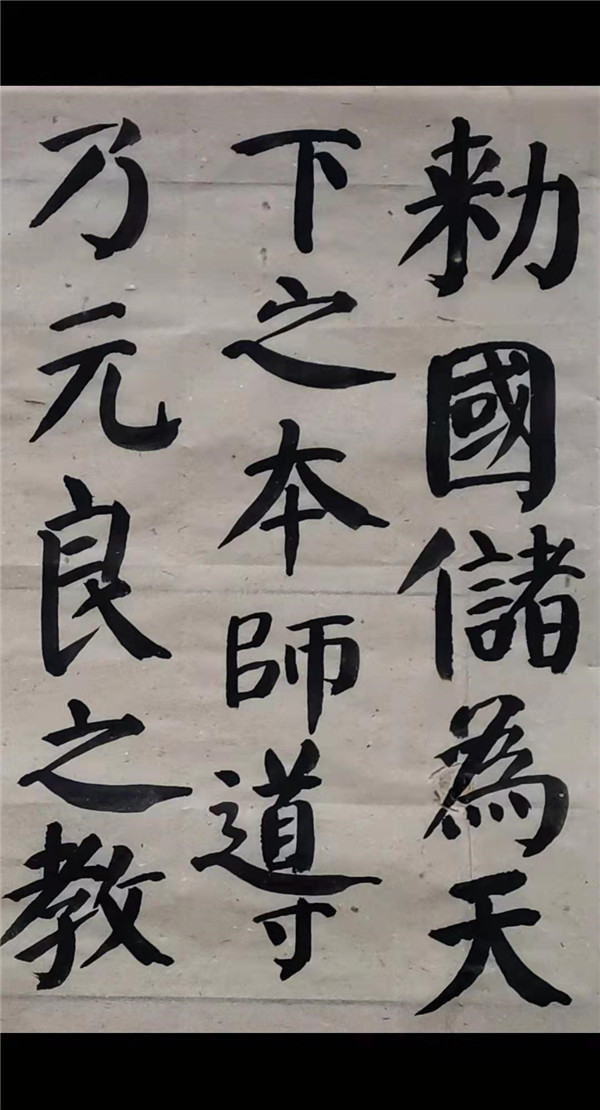 勑國儲為天
下之本師導
乃元良之教